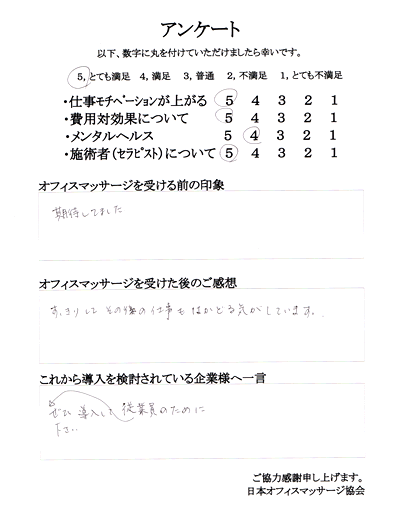 アンケート
以下、数字に丸を付けていただけましたら幸いです。
5, とても満足 4, 満足 3, 普通 2, 不満足 1, とても不満足
・仕事モチベーションが上がる 5 4 3 2 1
・費用対効果について 5 4 3 2 1
・メンタルヘルス 5 4 3 2 1
・施術者(セラピスト)について 5 4 3 2 1
オフィスマッサージを受ける前の印象
期待してました
オフィスマッサージを受けた後のご感想
すっきりして その後の仕事も はかどる気がしています。
これから導入を検討されている企業様へ一言
ぜひ 導入して 従業員のために
下さい
ご協力感謝申し上げます。
日本オフィスマッサージ協会